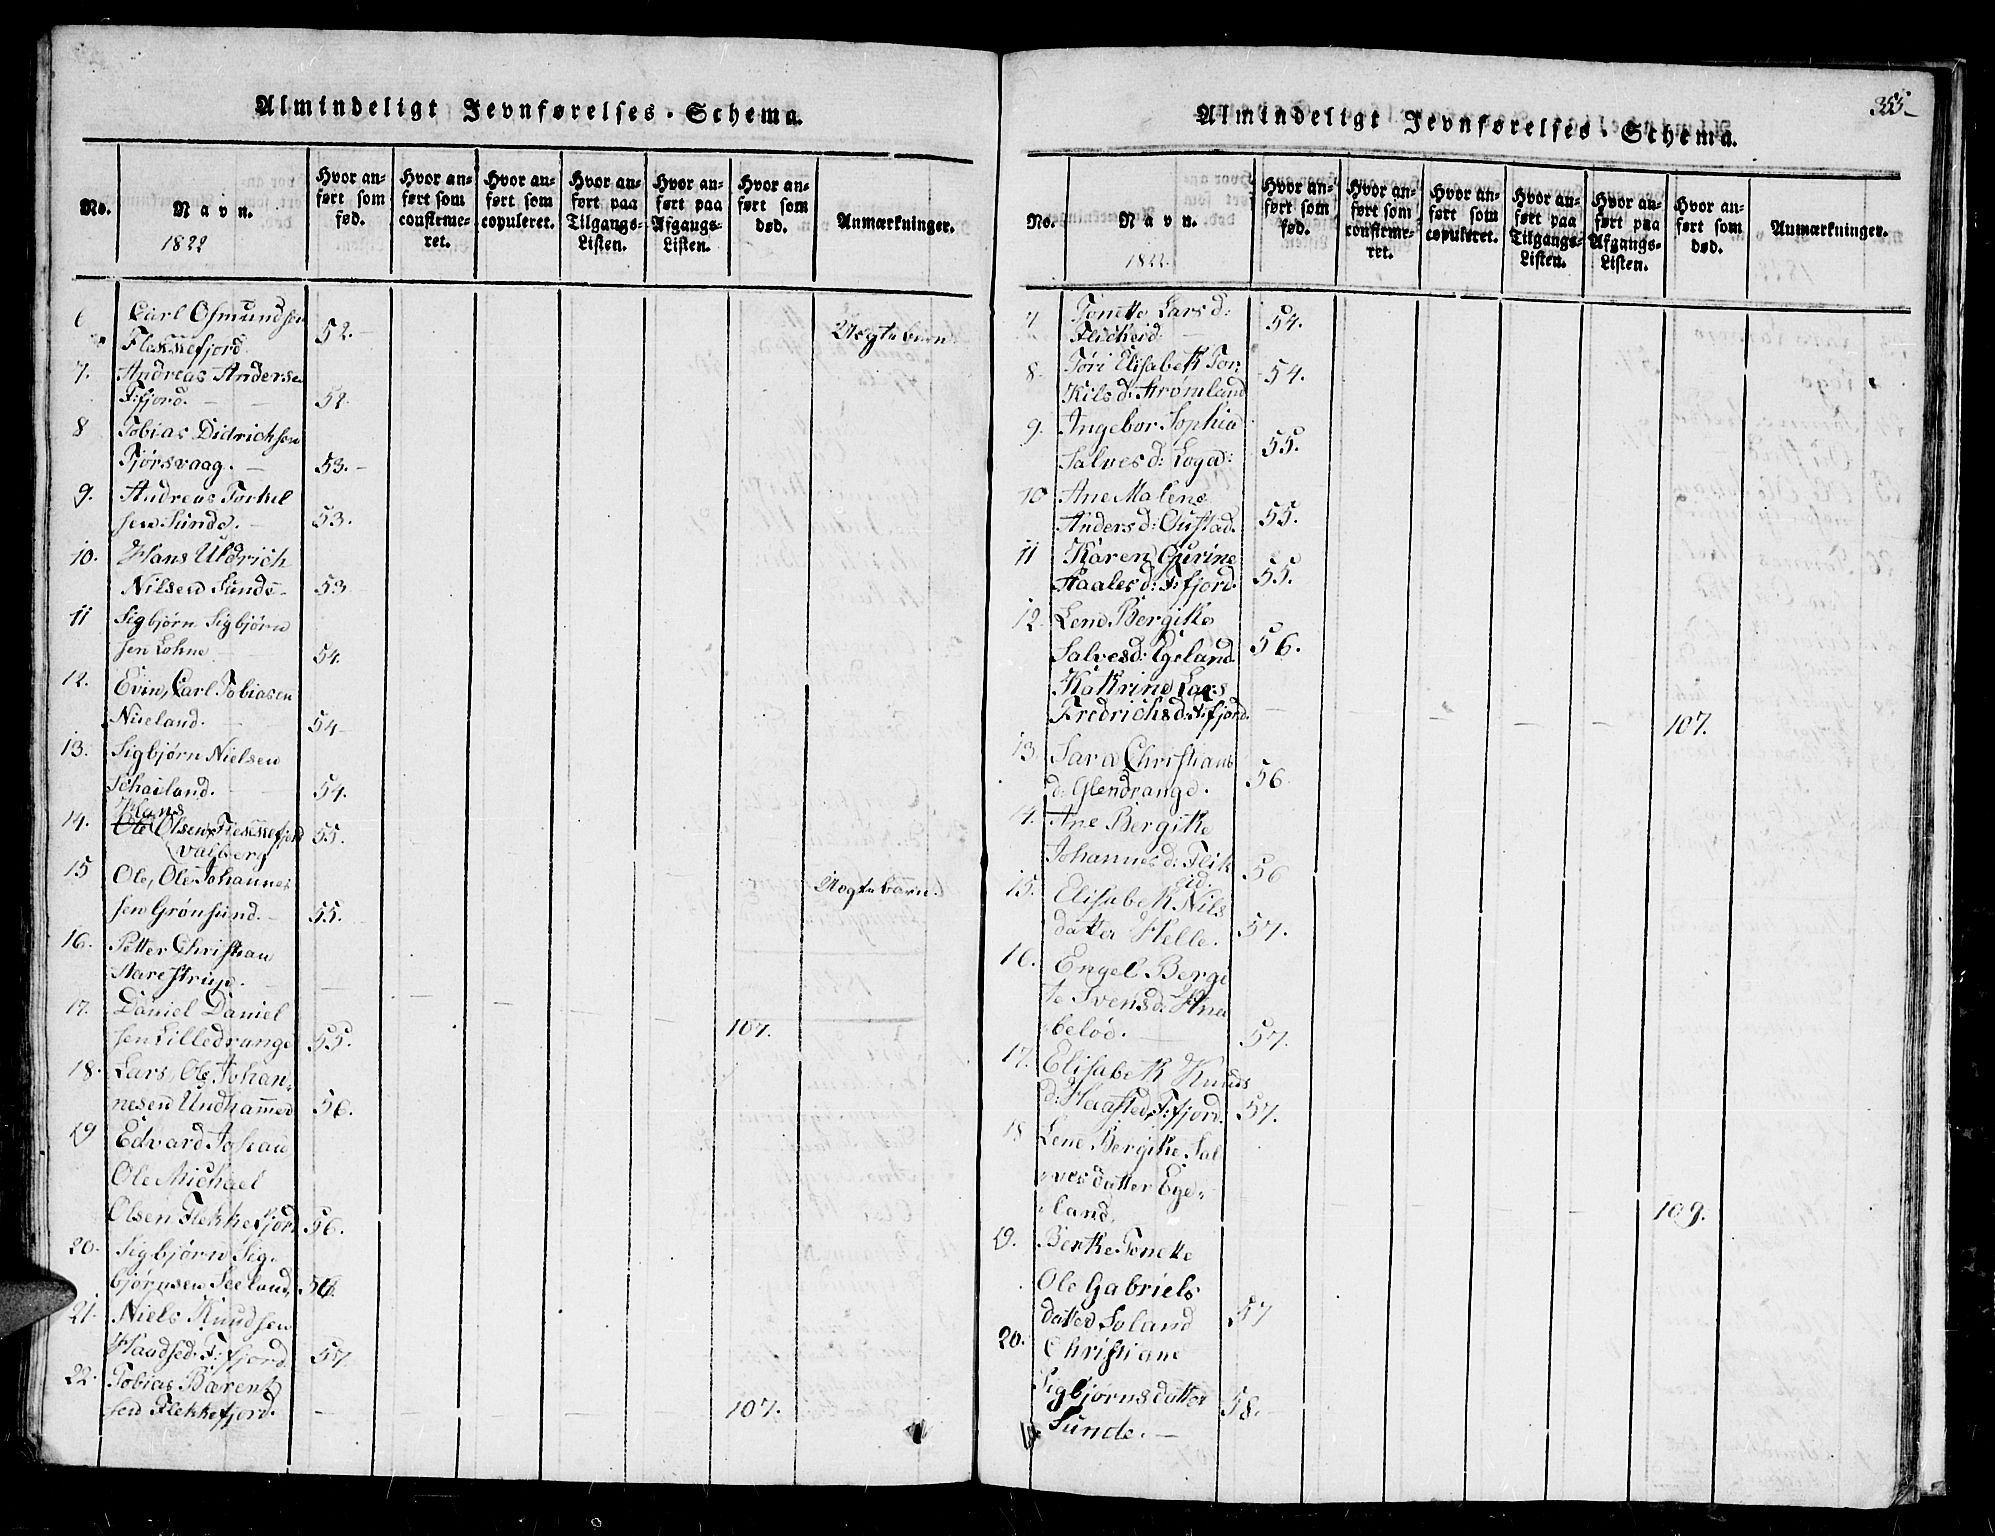 Almindeligt Jevnførelses-Schema.
No.
Navn.
1822
Hvor an-
ført som
fød.
Hvor an-
ført som
confirme-
ret.
Hvor an-
ført som
copuleret.
Hvor an-
ført paa
Tilgangs-
Listen.
Hvor an-
ført paa
Afgangs-
Listen.
Hvor an-
ført som
død.
Anmærkninger.
6 Carl Osmundsen
Flekkefjord 52. Uægte barn
7. Andreas Andersen
F:fjord. 52.
8 Tobias Didrichsen
Tjørsvaag. 53.
9. Andreas Torkel
sen Sunde. 53.
10. Hans Uldrich
Nilsen Sunde 53
11 Sigbjørn Sigbjørn
sen Lohne 54.
12. Evin, Carl Tobiasen
Niseland. 54
13. Sigbjørn Nielsen
Schailand. 54.
Hans
14. Ole Olsen Flekkefjord 55.
Valberg
15 Ole, Ole Johannes
sen Grønsund. 55. Uægte barn.
16. Petter Christian
Aarestrup.
17. Daniel Daniel 107.
sen Lilledrange 55.
18. Lars, Ole Johan-
nesen Undhammer 56.
19 Edvard Johan
Ole Michael
Olsen Flekkefjord 56.
20. Sigbjørn Sig-
bjørnsen Seeland, 56.
21. Niels Knudsen
Haudsed F:fjord 57
22. Tobias Bærent
sen Flekkefjord. 107.
355
Almindeligt Jevnførelses-Schema.
No.
Navn.
1822.
Hvor an-
ført som
fød.
Hvor an-
ført som
confirme-
ret.
Hvor an-
ført som
copuleret.
Hvor an-
ført paa
Tilgangs-
Listen.
Hvor an-
ført paa
Afgangs-
Listen.
Hvor an-
ført som
død.
Anmærkninger.
7 Tonette Lars d:
Flickeid 54.
8. Tøri Elisabeth Tor-
kils d: Strømland 54.
9. Angebor Sophia
Salves d: Loga: 55.
10 Ane Malene
Anders d: Oustad. 55.
11 Karen Gurine
Staales d: F:fjord. 55.
12. Lene Bergitte
Salves d: Egeland 56.
Katrine Lars
Fredrichs d: F:fjord. 107.
13. Sara Christians
d: Glendrange. 56.
14. Ane Bergitte
Johannes d: Flik
eid. 56
15. Elisabeth Nils
datter Helle. 57.
16. Engel Berge
te Svens d: Hna
beløe. 57.
17. Elisabeth Knuds
d: Haasted, F:fjord. 57.
18 Lene Bergitte Sal
ves datter Ege-
land. 109.
19. Berthe Tonette
Ole Gabriels
datter Soland 57
20. Christiane
Sigbjørnsdatter 58.
Sunde.